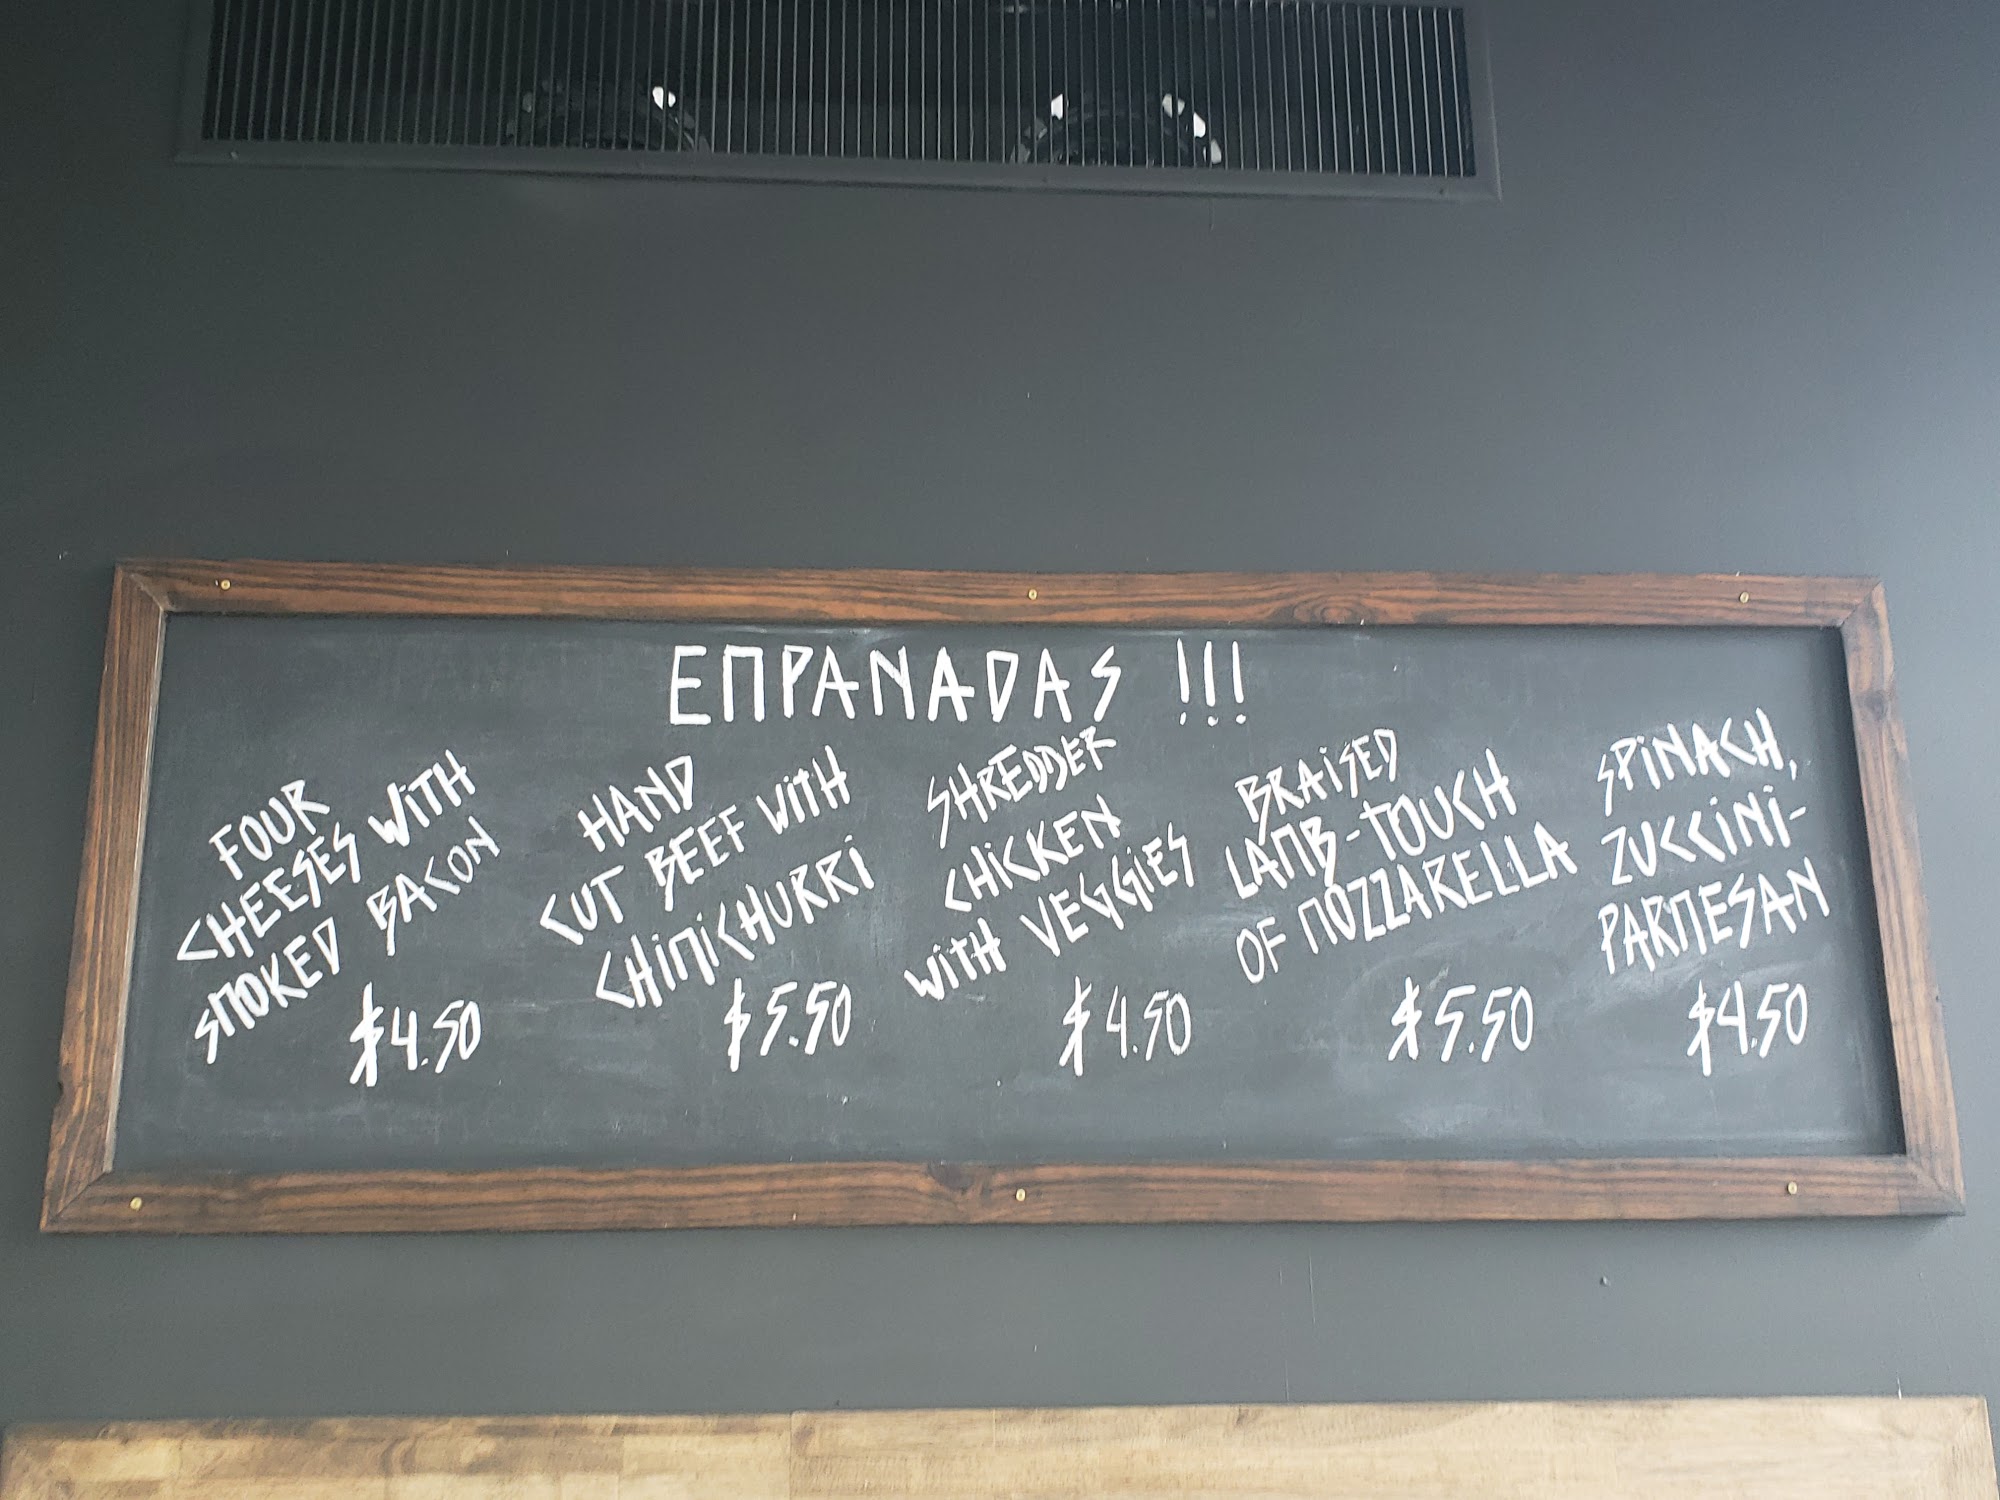 EMPANADAS !!!
FOUR
CHEESES WITH
SMOKED BACON
$4.50
HAND
CUT BEEF WITH
CHIMICHURRI
$5.50
SHREDDER
CHICKEN
WITH VEGGIES
$4.50
BRAISED
LAMB-TOUCH
OF MOZZARELLA
$5.50
SPINACH,
ZUCCINI-
PARMESAN
$4.50